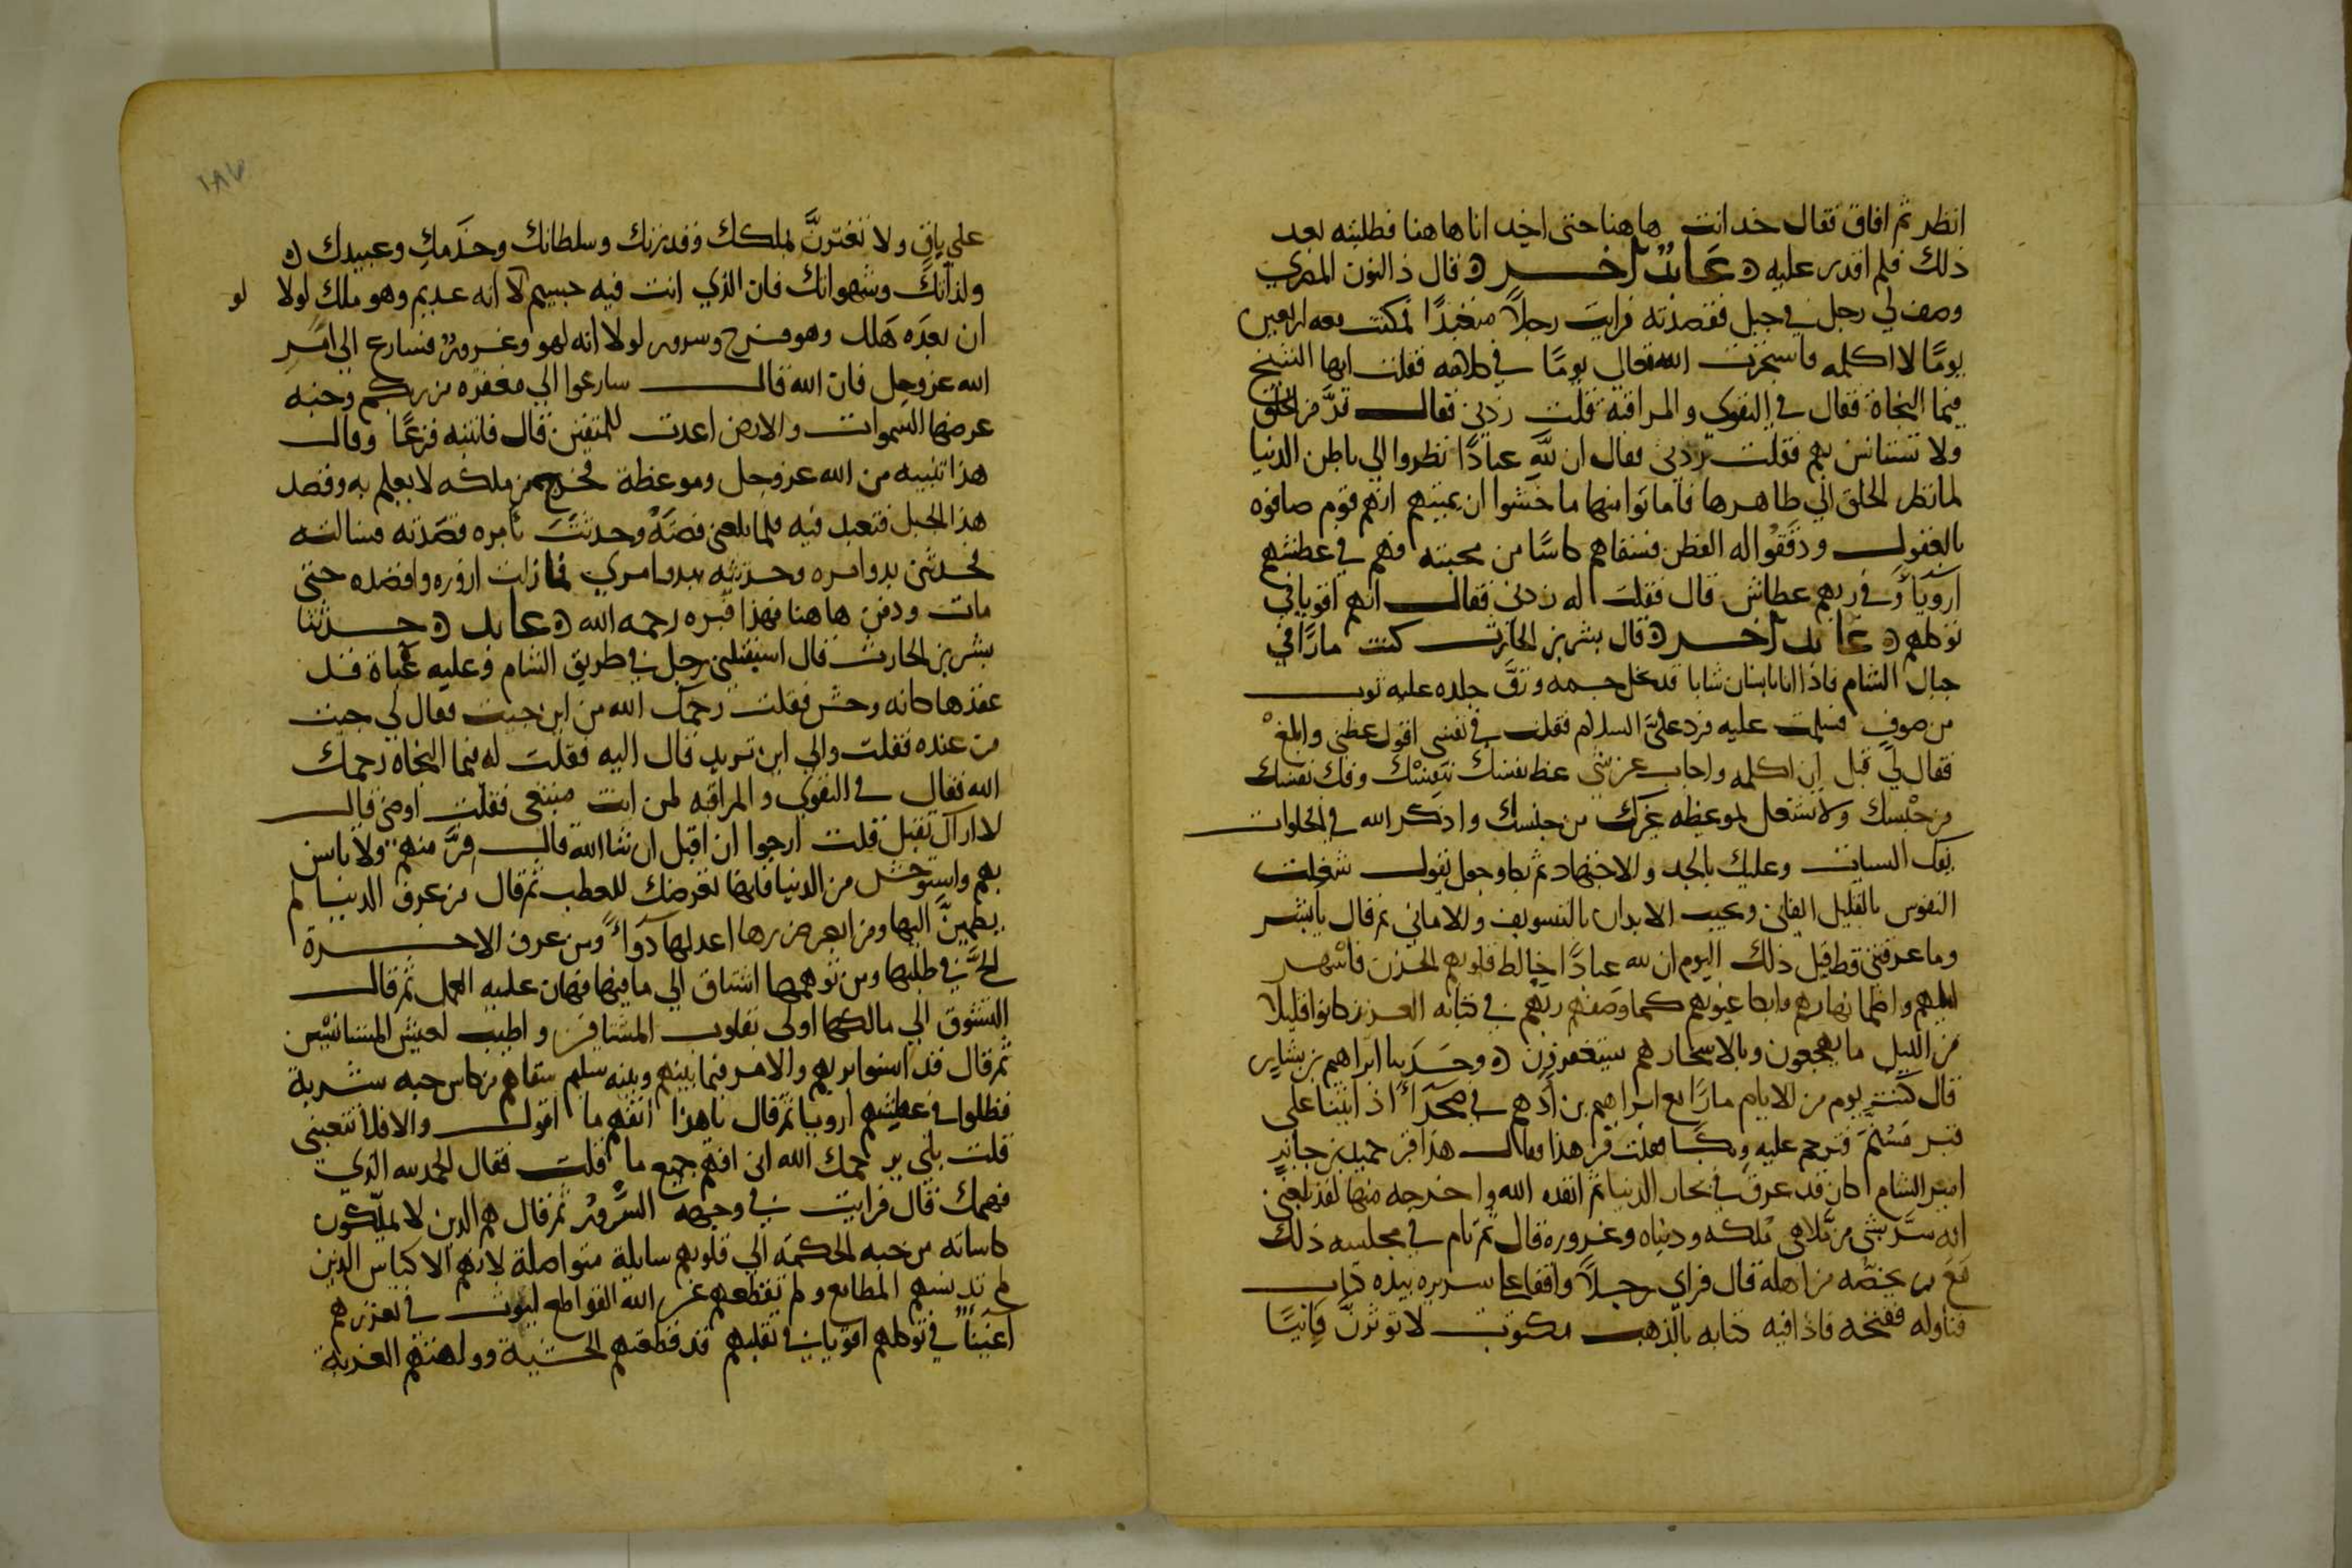 انظر ثم افاق فقال خد انت هاهنا حتى اخد انا هاهنا فطلبته بعد
ذلك فلم اقدر عليه عابد اخر قال ذالنون المصري
وصف لي رجل في جبل فقصدته فرايت رجلاً متعبدًا فمكثت معه اربعين
يومًا لا اكلمه فقال يومًا في كلامه فقلت ايها الشيخ
فيما النجاة فقال في التقوى والمراقبة قلت زدني فقال فرَّ من الخلق
ولا تستانس بهم فقلت زدني فقال ان للَّهِ عبادًا نظروا الي باطن الدنيا
لما نظر الخلق الي ظاهرها فاماتوا منها ما خشوا ان يميتهم انهم قوم صافوه
بالعقول ودققوا له الفطن فسقاهم كاسًا من محبته فهم في عطشهم
اروياء وفي ريهم عطاش قال فقلت له زدني فقال انهم اقويا في
توكلهم عابد اخر قال بشر بن الحارث كنت مارًا في
جبال الشام فاذا انا بانسان شابا قد نحل جسمه ورقَّ جلده عليه ثوب
من صوفٍ فسلمت عليه فرد عليَّ السلام فقلت في نفسي اقول عظني وابلغ
فقال لي قبل ان اكلمه واجاب عن عظ نفسك بنفسك وفك نفسك
من حبسك ولا تشتغل بموعظه غيرك من جنسك واذكر الله في الخلوات
السيات وعليك بالجد والاجتهاد ثم بكا وجعل يقول شغلت
النفوس بالقليل الفاني الابدان بالتسويف والاماني ثم قال يا بشر
وما عرفني قط قبل ذلك اليوم ان لله عبادًا خالط قلوبهم الحزن فاسهر
ليلهم واظما نهارهم وابكا عيونهم كما وصفهم ربهم في كتابه العزيز كانوا قليلاً
من الليل ما يهجعون وبالاسحار هم يستغفرون وحدثنا ابراهيم بن بشار
قال كنت يوم من الايام مارًا مع ابراهيم بن ادهم في صحراء اذ اتينا على
قبر مسنم فترحم عليه وبكا فقلت قبر من هذا فقال هذا قبر حميد بن جابر
امير الشام كان قد غرق في بحار الدنيا ثم انقذه الله واخرجه منها لقد بلغني
انه سر بشي من ملاهي ملكه ودنياه وغروره قال ثم نام في مجلسه ذلك
مع من يخصه من اهله قال فراى رجلاً واقفا على سريره بيده كتاب
فناوله ففتحه فاذا فيه كتابه بالذهب مكتوب لا توثرنَّ فانيًا
١٨٧
على باقٍ ولا تغترنَّ بملكك وقدرتك وسلطانك وخدمك وعبيدك
ولذاتك وشهواتك فان الذي انت فيه جسيم لا انه عديم وهو ملك لولا لو
ان بعده هلك وهو فرح وسرور لولا انه لهو وغرور فسارع الي امر
الله عز وجل فان الله قال سارعوا الي مغفره من ربكم وجنه
عرضها السموات والارض اعدت للمتقين قال فانتبه فزعًا وقال
هذا تنبيه من الله عز وجل وموعظة فخرج من ملكه لا يعلم به وقصد
هذا الجبل فتعبد فيه فلما بلغني قصته وحدثت بامره قصدته فسالته
فحدثني ببدو امره وحدثته ببدو امري فما زلت ازوره واقصده حتى
مات ودفن هاهنا فهذا قبره رحمه الله عابد حدثنا
بشر بن الحارث قال استقبلني رجل في طريق الشام وعليه عباة قد
عقدها كانه وحش فقلت رحمك الله من اين جيت فقال لي جيت
من عنده فقلت والي اين تريد قال اليه فقلت له فيما النجاة رحمك
الله فقال في التقوى والمراقبه لمن انت مبتغي فقلت اوصني قال
لا اراك تقبل قلت ارجوا ان اقبل ان شا الله قال فرَّ منهم ولا تانس
بهم واستوحش من الدنيا فانها تعرضك للعطب ثم قال من عرف الدنيا لم
يطمينَّ اليها ومن ابصر ضررها اعد لها دواءً ومن عرف الاخرة
الحَّ في طلبها ومن توهمها اشتاق الي ما فيها فهان عليه العمل ثم قال
التشوق الي مالكها اولى بقلوب المشتاقين واطيب لعيش المستانسين
ثم قال قد انسوا بربهم والامر فيما بينهم وبينه سلم سقاهم من كاس حبه شربة
فظلوا في عطشهم ارويا ثم قال يا هذا اتفهم ما اقول والا فلا تتعبني
قلت بلى يرحمك الله اني افهم جميع ما قلت فقال الحمد لله الذي
فهمك قال فرايت في وجهه السرور ثم قال هم الذين لا يملكون
كاساته من حبه الحكمه الي قلوبهم سايلة متواصلة لانهم الاكياس الذين
لم تدنسهم المطامع ولم تقطعهم عن الله القواطع ليوث في تعززهم
اغنيًا في توكلهم اقويا في تقلبهم قد قطعتهم الخشية وولهتهم الغربة